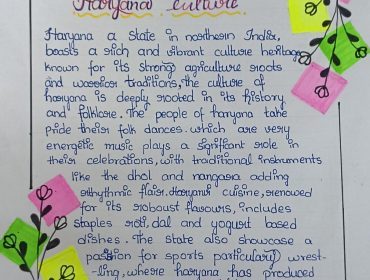 Haryana culture
Haryana a state in northern India,
boasts a rich and vibrant culture heritage
known for its strong agriculture roots
and warrior traditions, the culture of
haryana is deeply rooted in its history
and folklore. The people of haryana take
pride their folk dances. which are very
energetic music plays a significant role in
their celebrations, with traditional instruments
like the dhol and nangara adding
rhythmic flair. Haryanvi cuisine, renowed
for its roboust flavours, includes
staples roti, dal and yogurt based
dishes. The state also showcase a
passion for sports particularly wrest-
-ling, where haryana has produced